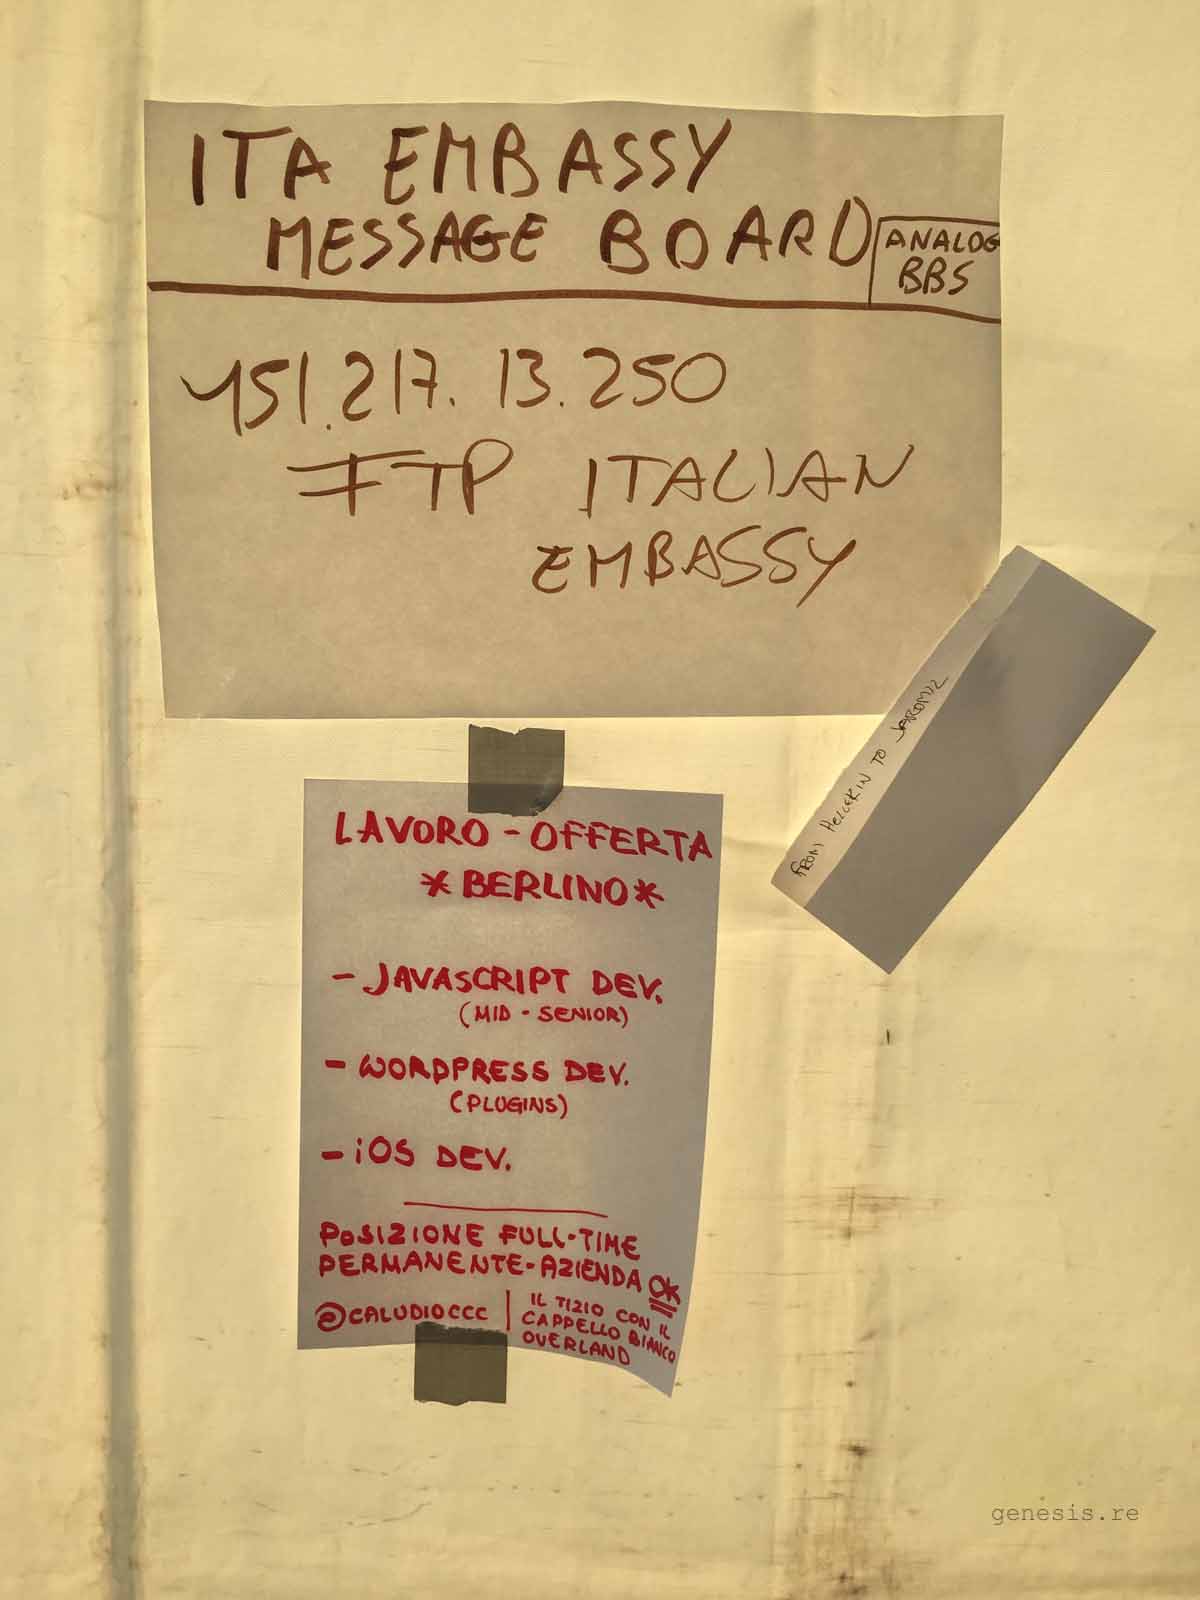 ITA EMBASSY
MESSAGE BOARD
ANALOG
BBS
151.217.13.250
FTP ITALIAN
EMBASSY
FROM HELLEKIN TO JAROMIL
LAVORO - OFFERTA
*BERLINO*
- JAVASCRIPT DEV.
(MID - SENIOR)
- WORDPRESS DEV.
(PLUGINS)
- iOS DEV.
POSIZIONE FULL-TIME
PERMANENTE - AZIENDA OK
@CALUDIOCCC
IL TIZIO CON IL
CAPPELLO BIANCO
OVERLAND
genesis.re